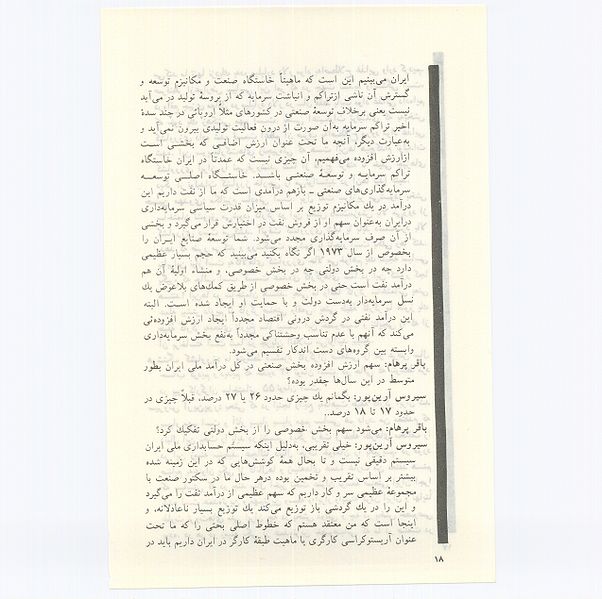 ایران می‌بینیم این است که ماهیتاً خاستگاه صنعت و مکانیزم توسعه و
گسترش آن ناشی ازتراکم و انباشت سرمایه که از پروسهٔ تولید در می‌آید
نیست یعنی برخلاف توسعهٔ صنعتی در کشورهای مثلاً اروپائی در چند سدهٔ
اخیر تراکم سرمایه به‌آن صورت از درون فعالیت تولیدی بیرون نمی‌آید و
به‌عبارت دیگر، آنچه ما تحت عنوان ارزش اضافـی که بخشـی اسـت
ازارزش افزوده می‌فهمیم، آن چیزی نیست که عمدتاً در ایران خاستگاه
تراکم سرمایـه و توسعـهٔ صنعتـی باشـد. خاستـگاه اصلـی توسعـه
سرمایه‌گذاری‌های صنعتی ـ بازهم درآمدی است که ما از نفت داریم این
درآمد در یك مکانیزم توزیع بر اساس میزان قدرت سیاسی سرمایه‌داری
درایران به‌عنوان سهم او از فروش نفت در اختیارش قرار می‌گیرد و بخشی
از آن صرف سرمایه‌گذاری مجدد می‌شود. شما توسعهٔ صنایع ایـران را
بخصوص از سال ۱۹۷۳ اگر نگاه بکنید می‌بینید که حجم بسیار عظیمی
دارد چه در بخش دولتی چه در بخش خصوصی، و منشاء اولیهٔ آن هم
درآمد نفت است حتی در بخش خصوصی از طریق کمك‌های بلاعوض یك
نسل سرمایه‌دار به‌دست دولت و با حمایت او ایجاد شده اسـت. البته
این درآمد نفتی در گردش درونی اقتصاد مجدداً ایجاد ارزش افزوده‌ئی
می‌کند که آنهم با عدم تناسب وحشتناکی مجدداً به‌نفع بخش سرمایه‌داری
وابسته بین گروه‌های دست اندکار تقسیم می‌شود.
باقر پرهام: سهم ارزش افزوده بخش صنعتی در کل درآمد ملی ایران بطور
متوسط در این سال‌ها چقدر بوده؟
سیروس آرین‌پور: بگمانم یك چیزی حدود ۲۶ یا ۲۷ درصد، قبلاً چیزی در
حدود ۱۷ تا ۱۸ درصد..
باقر پرهام: می‌شود سهم بخش خصوصی را از بخش دولتی تفکیك کرد؟
سیروس آرین‌پور: خیلی تقریبی. به‌دلیل اینکه سیستم حسابداری ملی ایران
سیستم دقیقی نیست و تا بحال همهٔ کوشش‌هایی که در این زمینه شده
بیشتر بر اساس تقریب و تخمین بوده درهر حال ما در سکتور صنعت با
مجموعهٔ عظیمی سر و کار داریم که سهم عظیمی از درآمد نفت را می‌گیرد
و این را در یك گردشی باز توزیع می‌کند یك توزیع بسیار ناعادلانه، و
اینجا است که من معتقد هستم که خطوط اصلی بحثی را که ما تحت
عنوان آریستوکراسی کارگری یا ماهیت طبقهٔ کارگر در ایران داریم باید در
۱۸